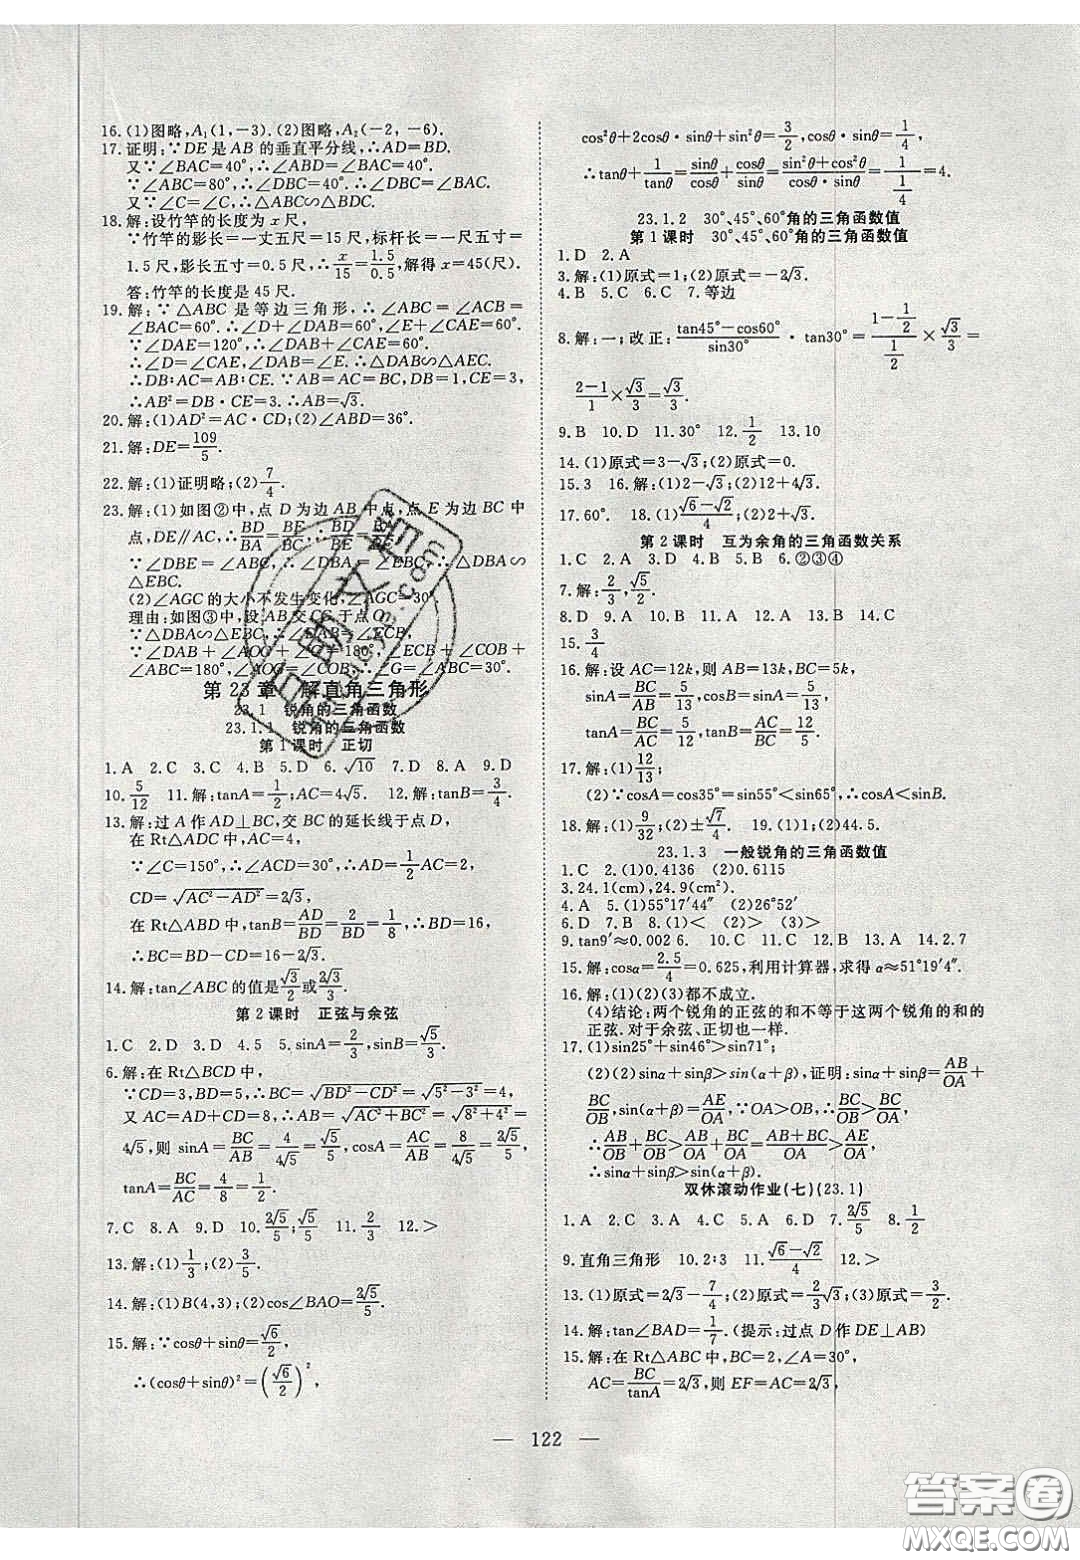 16.(1)图略,A₁(1,-3).(2)图略,A₂(-2,-6).
17.证明:∵DE是AB的垂直平分线,∴AD=BD.
又∵∠BAC=40°,∴∠ABD=∠BAC=40°.
∵∠ABC=80°,∴∠DBC=40°.∴∠DBC=∠BAC.
又∵∠C=∠C,∴△ABC∽△BDC.
18.解:设竹竿的长度为x尺,
∵竹竿的影长=一丈五尺=15尺,标杆长=一尺五寸=
1.5尺,影长五寸=0.5尺,∴x/15=1.5/0.5,解得x=45(尺).
答:竹竿的长度是45尺.
19.解:∵△ABC是等边三角形,∴∠ABC=∠ACB=
∠BAC=60°.∴∠D+∠DAB=60°,∠E+∠CAE=60°.
∵∠DAE=120°,∴∠DAB+∠CAE=60°.
∴∠D=∠CAE,∠DAB=∠E.∴△DAB∽△AEC.
∴DB:AC=AB:CE.∵AB=AC=BC,DB=1,CE=3,
∴AB²=DB·CE=3.∴AB=√3.
20.解:(1)AD²=AC·CD;(2)∠ABD=36°.
21.解:DE=109/5.
22.解:(1)证明略;(2)7/4.
23.解:(1)如图②中,点D为边AB中点,点E为边BC中
点,DE∥AC,∴BD/BA=BE/BC,∴BD/BE=BA/BC.
∵∠DBE=∠ABC,∴∠DBA=∠EBC.∴△DBA∽
△EBC.
(2)∠AGC的大小不发生变化,∠AGC=30°.
理由:如图③中,设AB交CG于点O.
∵△DBA∽△EBC,∴∠DAB=∠ECB.
∵∠DAB+∠AOG+∠G=180°,∠ECB+∠COB+
∠ABC=180°,∠AOG=∠COB,∴∠G=∠ABC=30°.
第23章 解直角三角形
23.1 锐角的三角函数
23.1.1 锐角的三角函数
第1课时 正切
1.A 2.C 3.C 4.B 5.D 6.√10 7.D 8.A 9.D
10.5/12 11.解:tanA=1/2;AC=4√5. 12.解:tanB=3/4.
13.解:过A作AD⊥BC,交BC的延长线于点D,
在Rt△ADC中,AC=4,
∵∠C=150°,∴∠ACD=30°,∴AD=1/2AC=2,
CD=√(AC²-AD²)=2√3,
在Rt△ABD中,tanB=AD/BD=2/BD=1/8,∴BD=16,
∴BC=BD-CD=16-2√3.
14.解:tan∠ABC的值是√3/2或2√3/3.
第2课时 正弦与余弦
1.C 2.D 3.D 4.5 5.解:sinA=2/3,sinB=√5/3.
6.解:在Rt△BCD中,
∵CD=3,BD=5,∴BC=√(BD²-CD²)=√(5²-3²)=4,
又AC=AD+CD=8,∴AB=√(AC²+BC²)=√(8²+4²)=
4√5,则sinA=BC/AB=4/4√5=√5/5,cosA=AC/AB=8/4√5=2√5/5,
tanA=BC/AC=4/8=1/2.
7.C 8.A 9.D 10.2√5/5;√5/5 11.2/3 12.>
13.解:(1)1/3;(2)√3/2.
14.解:(1)B(4,3);(2)cos∠BAO=2√5/5.
15.解:∵cosθ+sinθ=√6/2,
∴(cosθ+sinθ)²=(√6/2)²,
cos²θ+2cosθ·sinθ+sin²θ=3/2,cosθ·sinθ=1/4,
∴tanθ+1/tanθ=sinθ/cosθ+cosθ/sinθ=(sin²θ+cos²θ)/(cosθ·sinθ)=1/(1/4)=4.
23.1.2 30°、45°、60°角的三角函数值
第1课时 30°、45°、60°角的三角函数值
1.D 2.A
3.解:(1)原式=1;(2)原式=-2√3.
4.B 5.C 6.C 7.等边
8.解:一;改正:(tan45°-cos60°)/sin30°·tan30°=(1-1/2)/(1/2)×√3/3=
(2-1)/1×√3/3=√3/3.
9.B 10.D 11.30° 12.1/2 13.10
14.(1)原式=3-√3;(2)原式=0.
15.3 16.解:(1)2-√3;(2)12+4√3.
17.60° 18.(1)(√6-√2)/4;(2)2+√3.
第2课时 互为余角的三角函数关系
1.C 2.D 3.D 4.C 5.B 6.②③④
7.解:2/3,√5/2.
8.D 9.A 10.D 11.A 12.D 13.A 14.C
15.3/4
16.解:设AC=12k,则AB=13k,BC=5k,
sinA=BC/AB=5/13,cosB=BC/AB=5/13,
tanA=BC/AC=5/12,tanB=AC/BC=12/5.
17.解:(1)12/13;
(2)∵cosA=cos35°=sin55°<sin65°,∴cosA<sinB.
18.解:(1)9/32;(2)±√7/4. 19.(1)1;(2)44.5.
23.1.3 一般锐角的三角函数值
1.C 2.(1)0.4136 (2)0.6115
3.24.1(cm),24.9(cm²).
4.A 5.(1)55°17′44″ (2)26°52′
6.D 7.B 8.(1)< (2)> (3)>
9.tan9′≈0.002 6. 10.C 11.C 12.B 13.A 14.2.7
15.解:cosα=2.5/4=0.625,利用计算器,求得α≈51°19′4″.
16.解:(1)(2)(3)都不成立.
(4)结论:两个锐角的正弦的和不等于这两个锐角的和的
正弦.对于余弦、正切也一样.
17.(1)sin25°+sin46°>sin71°;
(2)(2)sinα+sinβ>sin(α+β),证明:sinα+sinβ=AB/OA+
BC/OB,sin(α+β)=AE/OA.∵OA>OB,∴BC/OB>BC/OA,
∴AB/OA+BC/OB>AB/OA+BC/OA=(AB+BC)/OA>AE/OA.
∴sinα+sinβ>sin(α+β).
双休滚动作业(七)(23.1)
1.A 2.C 3.C 4.A 5.A 6.D 7.2√5/5 8.1/2
9.直角三角形 10.2:3 11.(√6-√2)/4 12.>
13.(1)原式=2√3-7/4;(2)原式=2/3√3;(3)原式=3/2.
14.解:tan∠BAD=1/7.(提示:过点D作DE⊥AB)
15.解:在Rt△ABC中,BC=2,∠A=30°,
AC=BC/tanA=2√3,则EF=AC=2√3,
— 122 —
答案圈
MXQE.COM